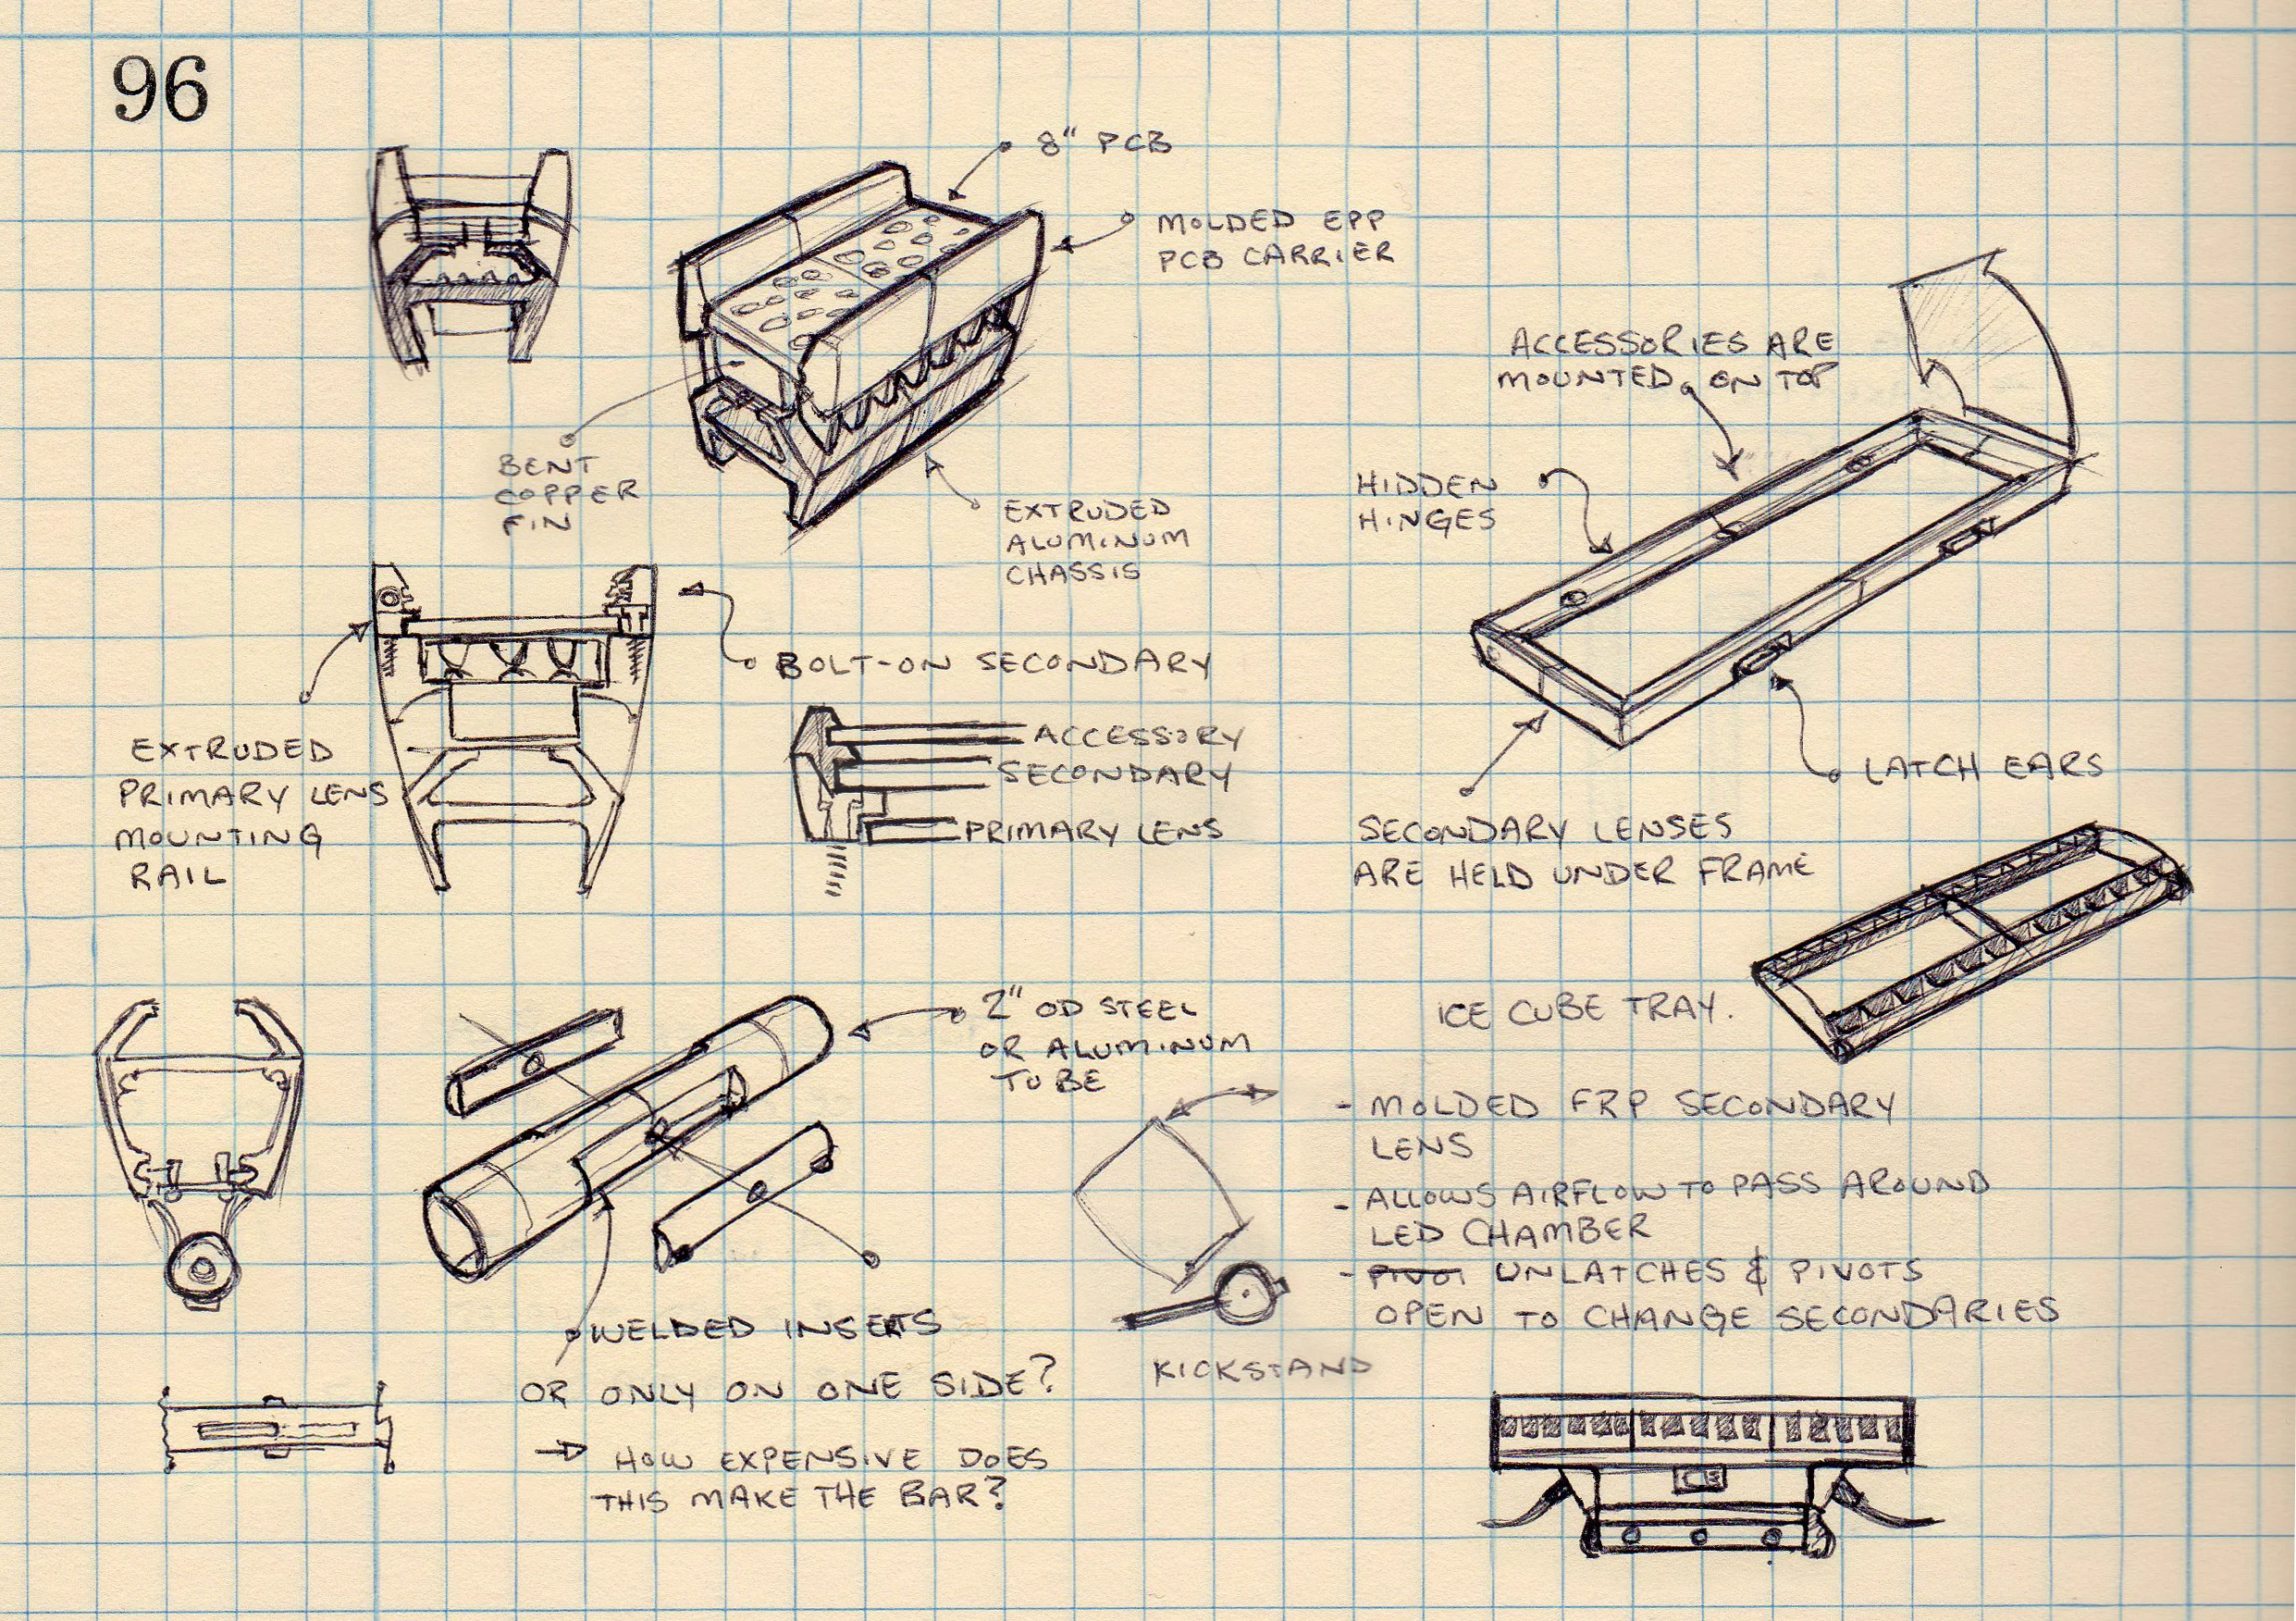 96
8" PCB
MOLDED EPP
PCB CARRIER
BENT
COPPER
FIN
EXTRUDED
ALUMINUM
CHASSIS
ACCESSORIES ARE
MOUNTED ON TOP
HIDDEN
HINGES
BOLT-ON SECONDARY
EXTRUDED
PRIMARY LENS
MOUNTING
RAIL
ACCESSORY
SECONDARY
PRIMARY LENS
LATCH EARS
SECONDARY LENSES
ARE HELD UNDER FRAME
2" OD STEEL
OR ALUMINUM
TUBE
ICE CUBE TRAY.
- MOLDED FRP SECONDARY
LENS
- ALLOWS AIRFLOW TO PASS AROUND
LED CHAMBER
- PIVOT UNLATCHES & PIVOTS
OPEN TO CHANGE SECONDARIES
WELDED INSERTS
OR ONLY ON ONE SIDE?
→ HOW EXPENSIVE DOES
THIS MAKE THE BAR?
KICKSTAND